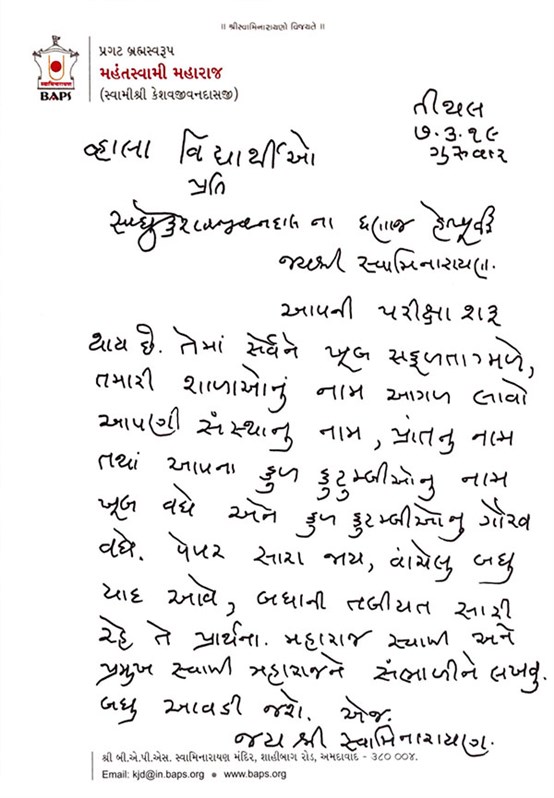 ॥ શ્રીસ્વામિનારાયણો વિજયતે ॥
પ્રગટ બ્રહ્મસ્વરૂપ
મહંતસ્વામી મહારાજ
(સ્વામીશ્રી કેશવજીવનદાસજી)
BAPS
તીથલ
૭.૩.૧૯
ગુરુવાર
વ્હાલા વિદ્યાર્થીઓ
પ્રતિ
સાધુ કેશવજીવનદાસ ના ઘણાજ હેતપૂર્વક
જયશ્રી સ્વામિનારાયણ.
આપની પરીક્ષા શરૂ
થાય છે. તેમાં સર્વને ખૂબ સફળતા મળે,
તમારી શાળાઓનું નામ આગળ લાવો
આપણી સંસ્થાનુ નામ, પ્રાંતનુ નામ
તથા આપના કુળ કુટુમ્બીઓનુ નામ
ખૂબ વધે અને કુળ કુટમ્બીઓનુ ગૌરવ
વધે. પેપર સારા જાય, વાંચેલુ બધુ
યાદ આવે, બધાની તબીયત સારી
રહે તે પ્રાર્થના. મહારાજ સ્વામી અને
પ્રમુખ સ્વામી મહારાજને સંભાળીને લખવુ.
બધુ આવડી જશે. એજ.
જય શ્રી સ્વામિનારાયણ.
શ્રી બી.એ.પી.એસ. સ્વામિનારાયણ મંદિર, શાહીબાગ રોડ, અમદાવાદ - ૩૮૦ ૦૦૪.
Email: kjd@in.baps.org • www.baps.org